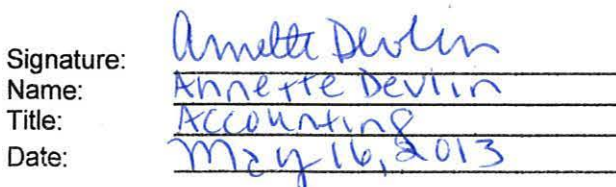 Signature: Annette Devlin
Name: Annette Devlin
Title: Accounting
Date: May 16, 2013